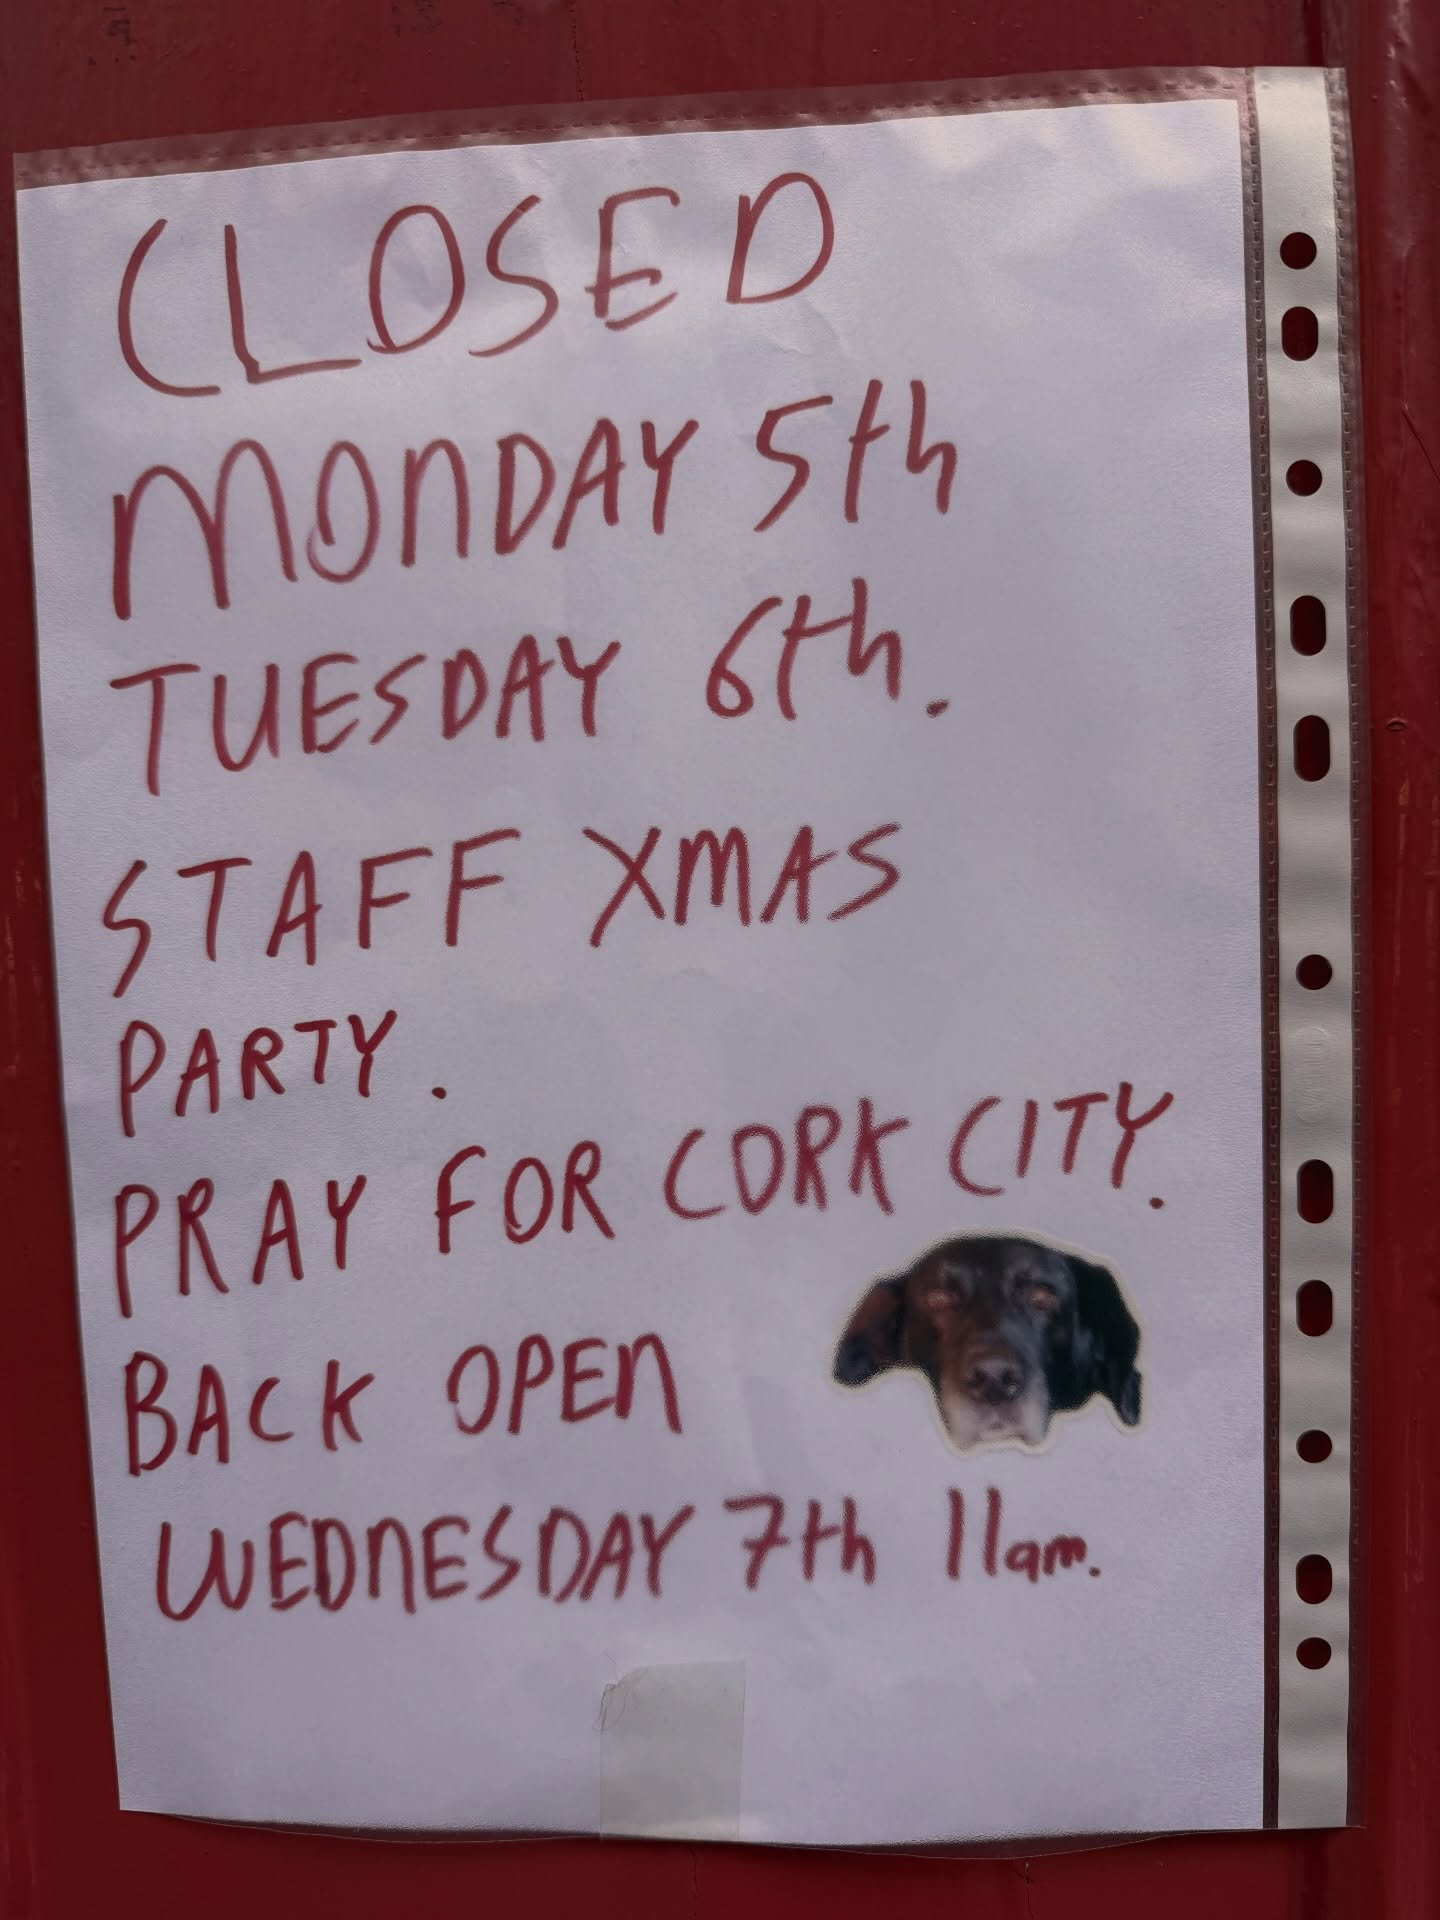 CLOSED
MONDAY 5th
TUESDAY 6th.
STAFF XMAS
PARTY.
PRAY FOR CORK CITY.
BACK OPEN
WEDNESDAY 7th 11am.